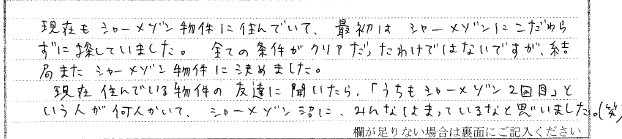 現在もシャーメゾン物件に住んでいて、最初はシャーメゾンにこだわら
ずに探していました。全ての条件がクリアだったわけではないですが、結
局またシャーメゾン物件に決めました。
現在住んでいる物件の友達に聞いたら、「うちもシャーメゾン2回目」と
いう人が何人かいて、シャーメゾン沼に、みんなはまっているなと思いました。(笑)
欄が足りない場合は裏面にご記入ください